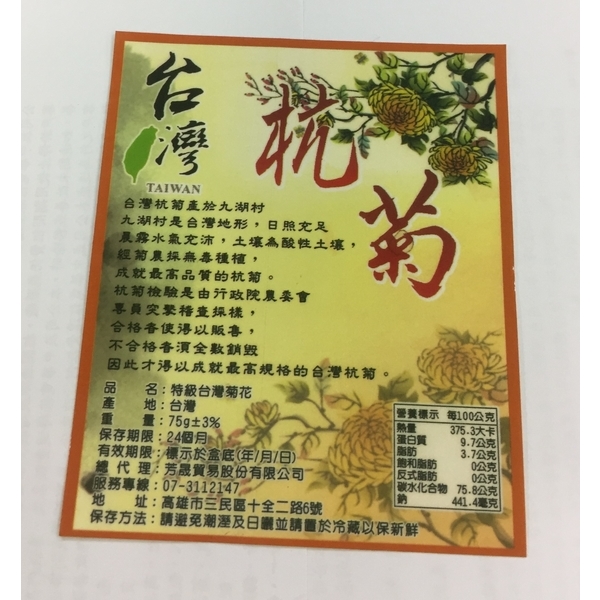 台灣
TAIWAN
杭菊
台灣杭菊產於九湖村
九湖村是台灣地形，日照充足
晨霧水氣充沛，土壤為酸性土壤，
經菊農採無毒種植，
成就最高品質的杭菊。
杭菊檢驗是由行政院農委會
專員突擊稽查採樣，
合格者使得以販售，
不合格者須全數銷毀
因此才得以成就最高規格的台灣杭菊。
品　名：特級台灣菊花
產　地：台灣
重　量：75g±3%
保存期限：24個月
有效期限：標示於盒底(年/月/日)
總代理：芳晟貿易股份有限公司
服務專線：07-3112147
地　址：高雄市三民區十全二路6號
保存方法：請避免潮溼及日曬並請置於冷藏以保新鮮
營養標示 每100公克
熱量 375.3大卡
蛋白質 9.7公克
脂肪 3.7公克
飽和脂肪 0公克
反式脂肪 0公克
碳水化合物 75.8公克
鈉 441.4毫克